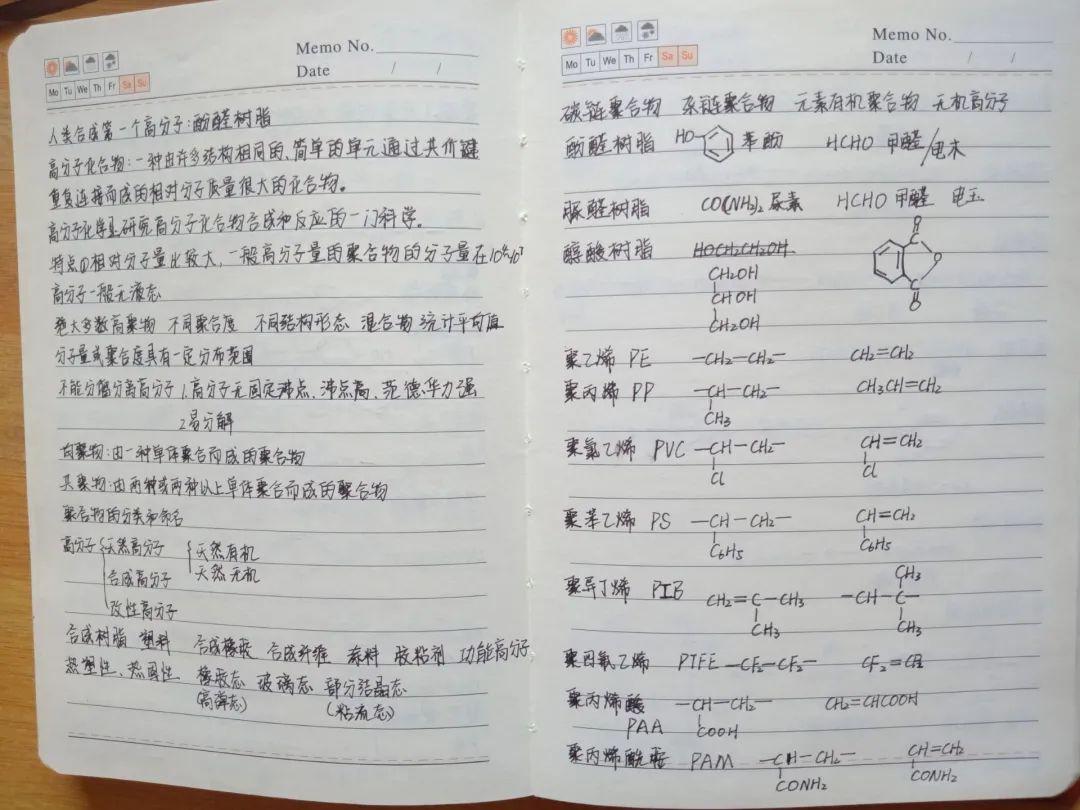 Memo No.
Date / /
Mo Tu We Th Fr Sa Su
人类合成第一个高分子:酚醛树脂
高分子化合物:一种由许多结构相同的、简单的单元通过共价键
重复连接而成的相对分子质量很大的化合物。
高分子化学是研究高分子化合物合成和反应的一门科学。
特点①相对分子量比较大,一般高分子量的聚合物的分子量在10⁴~10⁷
高分子一般无液态
绝大多数高聚物 不同聚合度 不同结构形态 混合物 统计平均值
分子量或聚合度具有一定分布范围
不能分馏分离高分子 1.高分子无固定沸点、沸点高、范德华力强
2.易分解
均聚物:由一种单体聚合而成的聚合物
共聚物:由两种或两种以上单体聚合而成的聚合物
聚合物的分类和命名
高分子 天然高分子 天然有机
天然无机
合成高分子
改性高分子
合成树脂 塑料 合成橡胶 合成纤维 涂料 胶粘剂 功能高分子
热塑性、热固性 橡胶态 玻璃态 部分结晶态
(高弹态) (粘流态)
Memo No.
Date / /
Mo Tu We Th Fr Sa Su
碳链聚合物 杂链聚合物 元素有机聚合物 无机高分子
酚醛树脂 HO 苯酚 HCHO 甲醛/电木
脲醛树脂 CO(NH₂)₂ 尿素 HCHO 甲醛 电玉
醇酸树脂 HOCH2CH2OH
O
CH2OH C
CHOH O
CH2OH C
O
聚乙烯 PE —CH₂—CH₂— CH₂=CH₂
聚丙烯 PP —CH—CH₂— CH₃CH=CH₂
CH₃
聚氯乙烯 PVC —CH—CH₂— CH=CH₂
Cl Cl
聚苯乙烯 PS —CH—CH₂— CH=CH₂
C₆H₅ C₆H₅
CH₃
聚异丁烯 PIB CH₂=C—CH₃ —CH—C—
CH₃ CH₃
聚四氟乙烯 PTFE —CF₂—CF₂— CF₂=CF₂
聚丙烯酸 —CH—CH₂— CH₂=CHCOOH
PAA COOH
聚丙烯酰胺 PAM —CH—CH₂— CH=CH₂
CONH₂ CONH₂